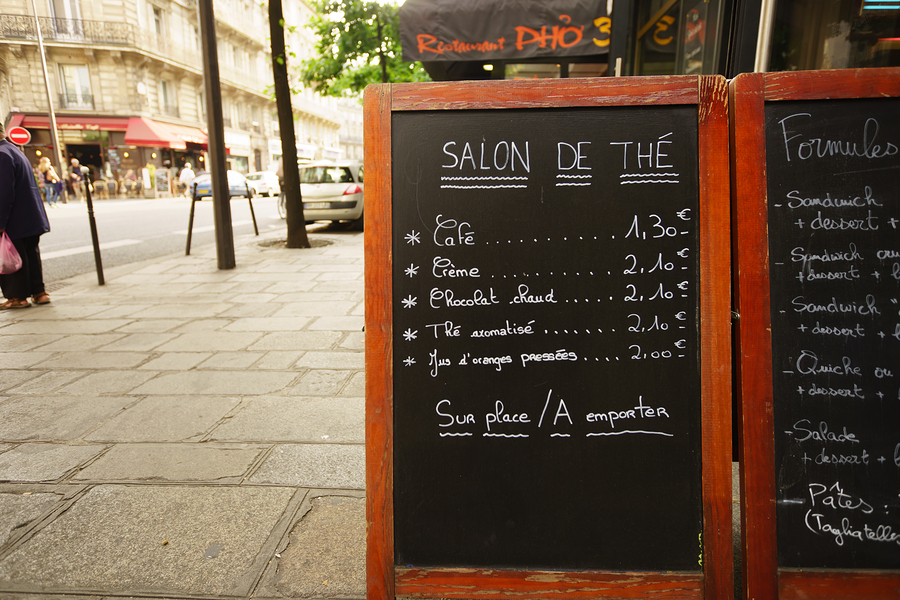 Restaurant PHỞ 3
SALON DE THÉ
* Café ............ 1,30€
* Crème ........... 2,10€
* Chocolat chaud ..... 2,10€
* Thé aromatisé ........ 2,10€
* Jus d'oranges pressées .... 2,00€
Sur place / A emporter
Formules
- Sandwich
+ dessert +
- Sandwich
+ dessert +
- Sandwich
+ dessert +
- Quiche ou
+ dessert
- Salade
+ dessert +
- Pâtes :
(Tagliatelles